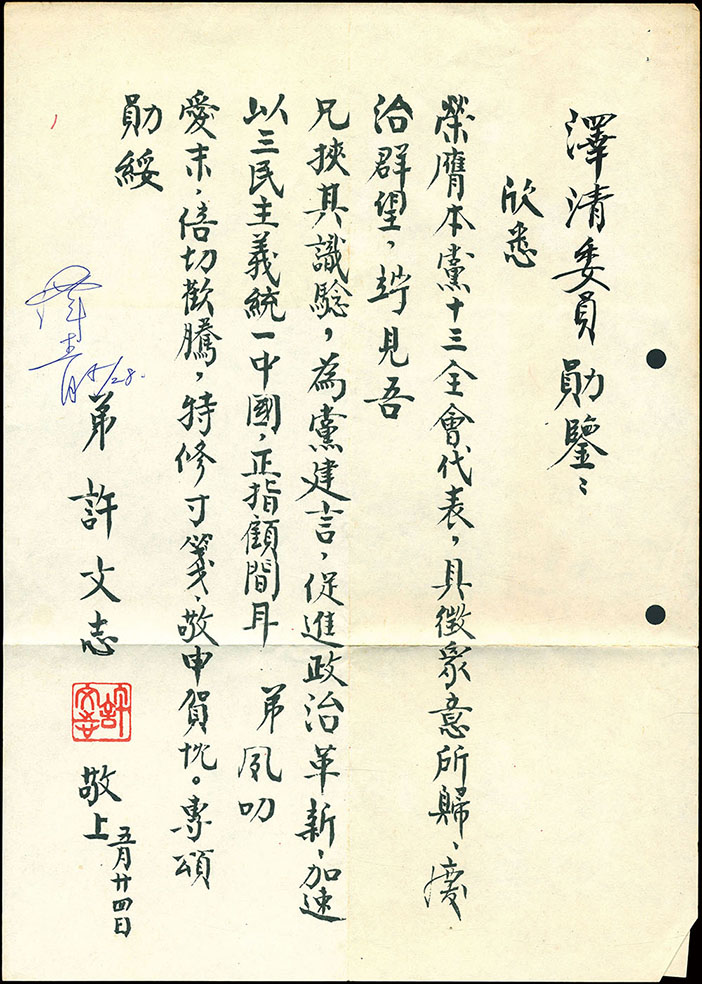 澤清委員勛鑒：
欣悉
榮膺本黨十三全會代表，具徵眾意所歸、慶
洽群望，竚見吾
兄挾其識驗，為黨建言，促進政治革新，加速
以三民主義統一中國，正指顧間耳 弟夙叨
愛末，倍切歡騰，特修寸箋、敬申賀忱。專頌
勛綏
弟 許文志 敬上 五月廿四日
許文志
5/28.